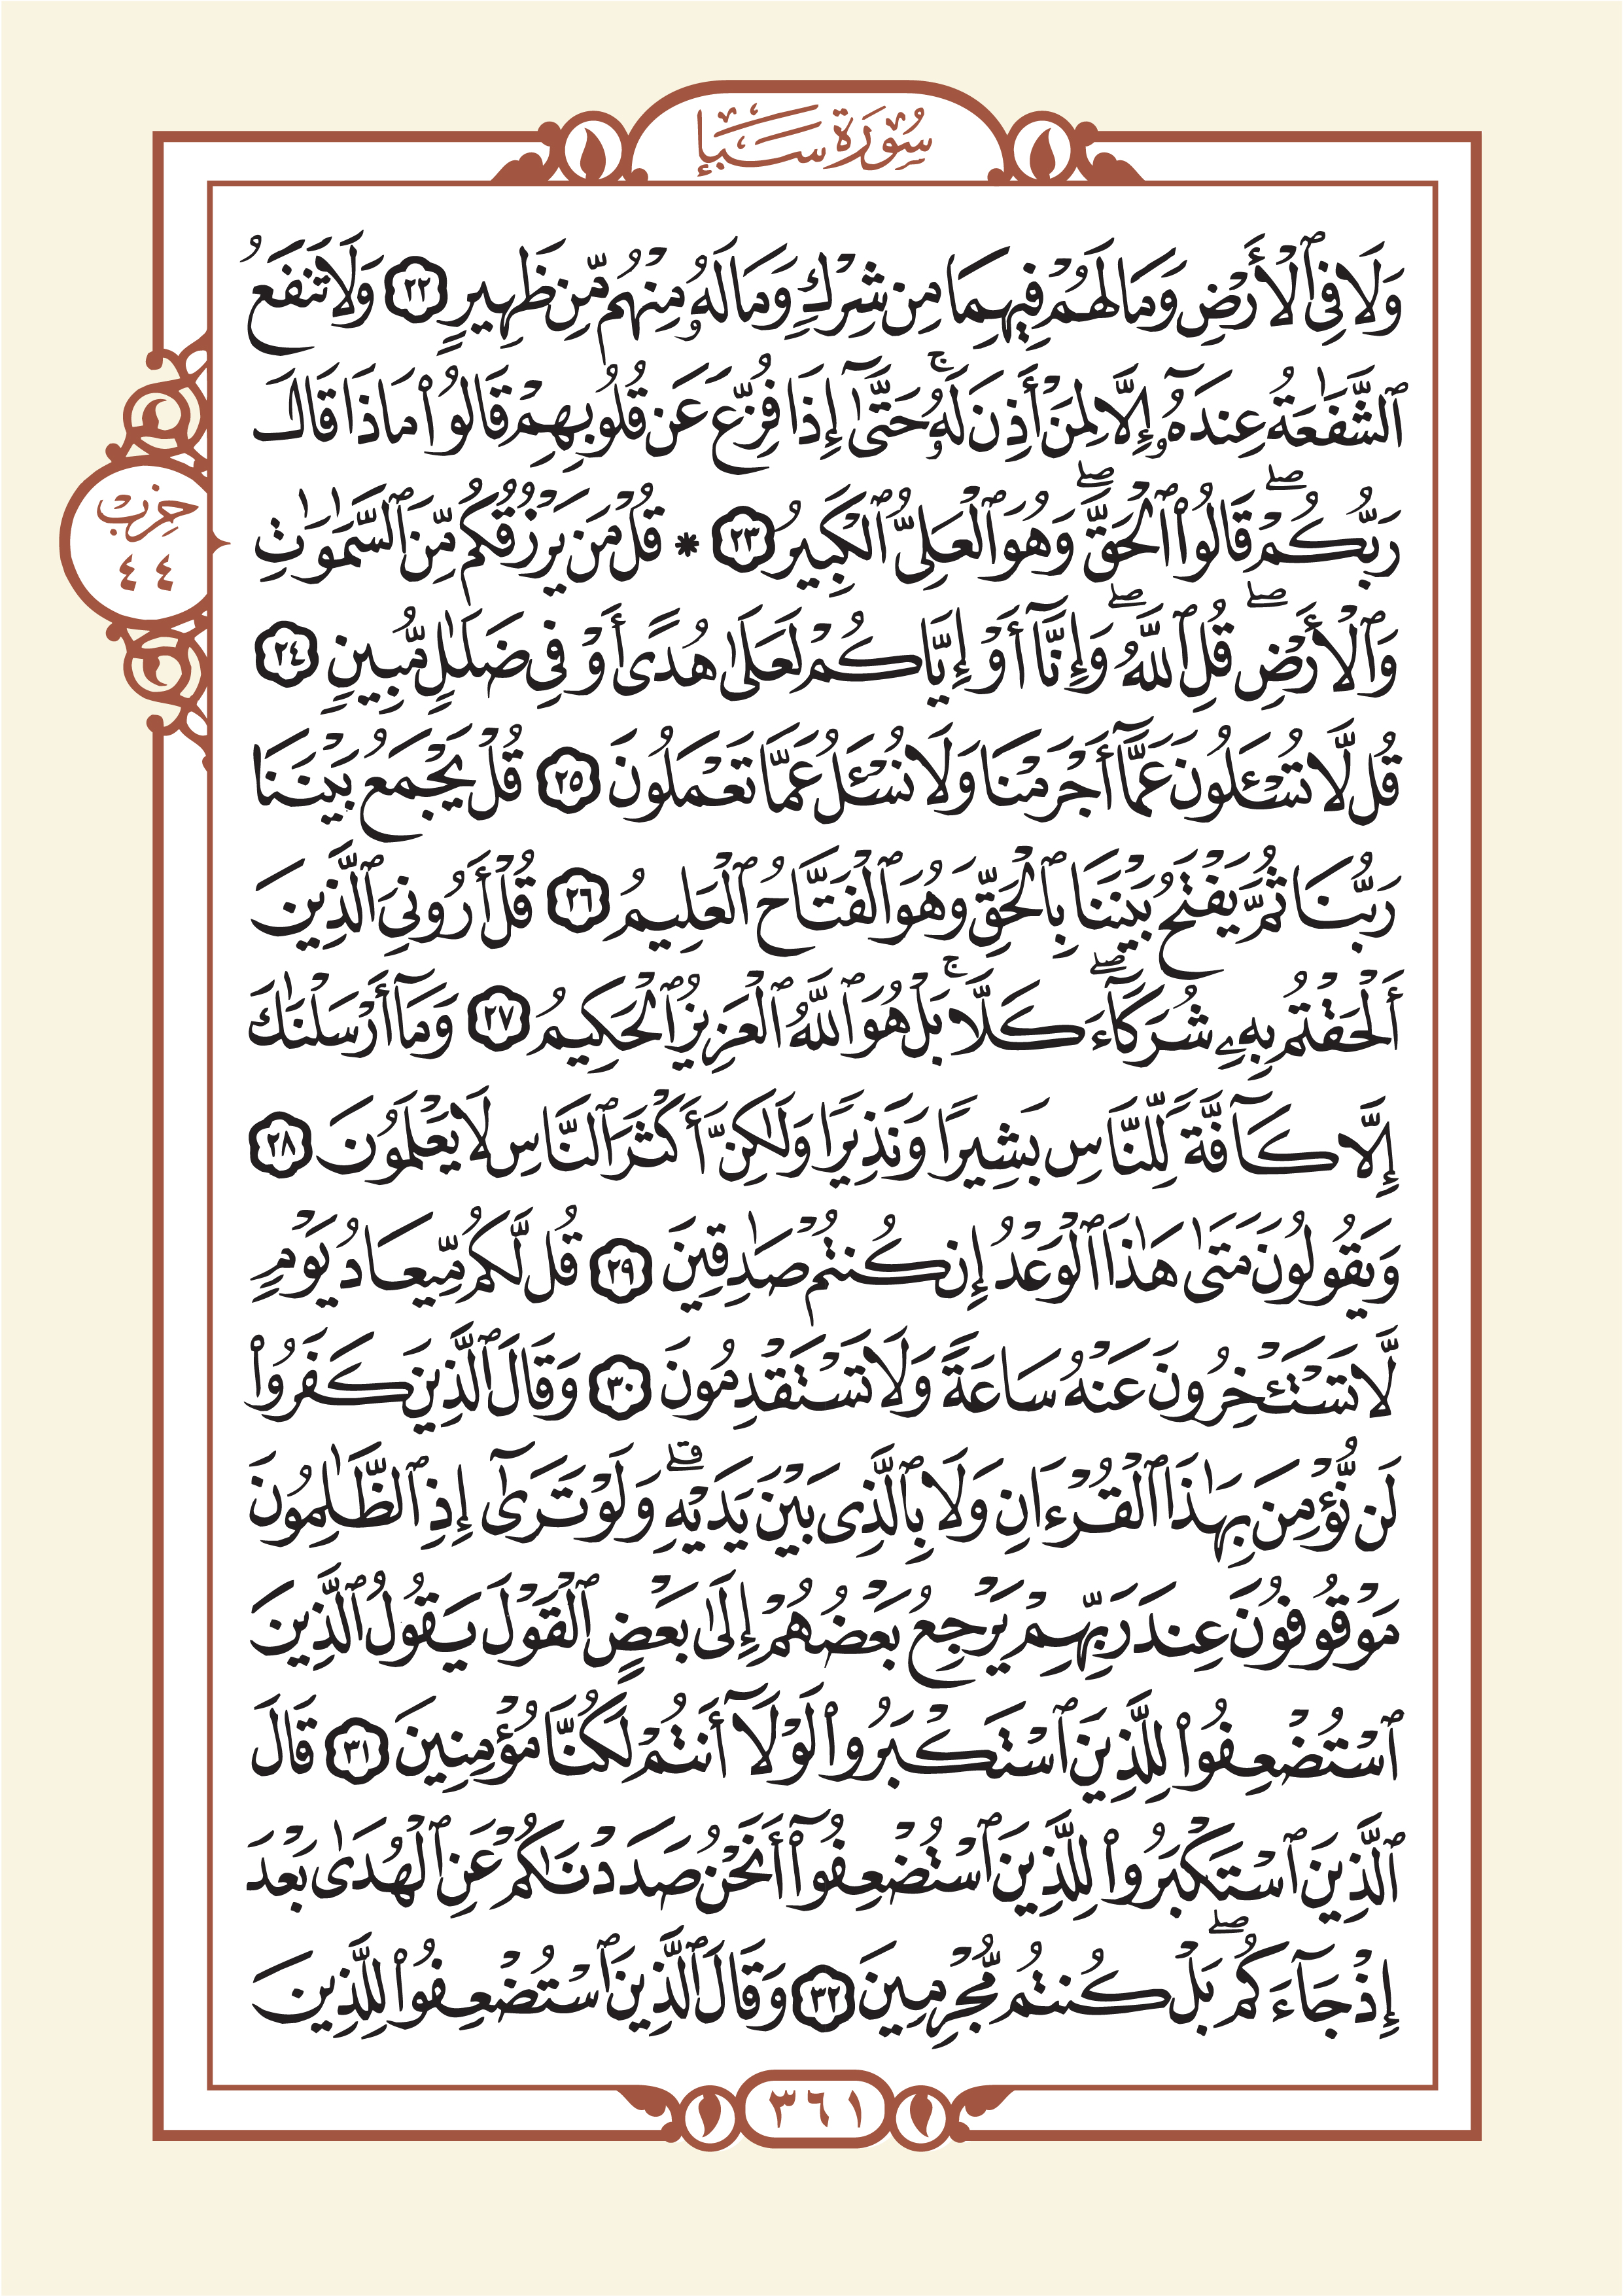 سُورَةُ سَبَإٍ
وَلَا فِى ٱلْأَرْضِ وَمَا لَهُمْ فِيهِمَا مِن شِرْكٍ وَمَا لَهُۥ مِنْهُم مِّن ظَهِيرٍ ٢٢ وَلَا تَنفَعُ
ٱلشَّفَٰعَةُ عِندَهُۥٓ إِلَّا لِمَنْ أَذِنَ لَهُۥ ۚ حَتَّىٰٓ إِذَا فُزِّعَ عَن قُلُوبِهِمْ قَالُوا۟ مَاذَا قَالَ
رَبُّكُمْ ۖ قَالُوا۟ ٱلْحَقَّ ۖ وَهُوَ ٱلْعَلِىُّ ٱلْكَبِيرُ ٢٣ * قُلْ مَن يَرْزُقُكُم مِّنَ ٱلسَّمَٰوَٰتِ
وَٱلْأَرْضِ ۖ قُلِ ٱللَّهُ ۖ وَإِنَّآ أَوْ إِيَّاكُمْ لَعَلَىٰ هُدًى أَوْ فِى ضَلَٰلٍ مُّبِينٍ ٢٤
قُل لَّا تُسْـَٔلُونَ عَمَّآ أَجْرَمْنَا وَلَا نُسْـَٔلُ عَمَّا تَعْمَلُونَ ٢٥ قُلْ يَجْمَعُ بَيْنَنَا
رَبُّنَا ثُمَّ يَفْتَحُ بَيْنَنَا بِٱلْحَقِّ وَهُوَ ٱلْفَتَّاحُ ٱلْعَلِيمُ ٢٦ قُلْ أَرُونِىَ ٱلَّذِينَ
أَلْحَقْتُم بِهِۦ شُرَكَآءَ ۖ كَلَّا ۚ بَلْ هُوَ ٱللَّهُ ٱلْعَزِيزُ ٱلْحَكِيمُ ٢٧ وَمَآ أَرْسَلْنَٰكَ
إِلَّا كَآفَّةً لِّلنَّاسِ بَشِيرًا وَنَذِيرًا وَلَٰكِنَّ أَكْثَرَ ٱلنَّاسِ لَا يَعْلَمُونَ ٢٨
وَيَقُولُونَ مَتَىٰ هَٰذَا ٱلْوَعْدُ إِن كُنتُمْ صَٰدِقِينَ ٢٩ قُل لَّكُم مِّيعَادُ يَوْمٍ
لَّا تَسْتَـْٔخِرُونَ عَنْهُ سَاعَةً وَلَا تَسْتَقْدِمُونَ ٣٠ وَقَالَ ٱلَّذِينَ كَفَرُوا۟
لَن نُّؤْمِنَ بِهَٰذَا ٱلْقُرْءَانِ وَلَا بِٱلَّذِى بَيْنَ يَدَيْهِ ۗ وَلَوْ تَرَىٰٓ إِذِ ٱلظَّٰلِمُونَ
مَوْقُوفُونَ عِندَ رَبِّهِمْ يَرْجِعُ بَعْضُهُمْ إِلَىٰ بَعْضٍ ٱلْقَوْلَ يَقُولُ ٱلَّذِينَ
ٱسْتُضْعِفُوا۟ لِلَّذِينَ ٱسْتَكْبَرُوا۟ لَوْلَآ أَنتُمْ لَكُنَّا مُؤْمِنِينَ ٣١ قَالَ
ٱلَّذِينَ ٱسْتَكْبَرُوا۟ لِلَّذِينَ ٱسْتُضْعِفُوٓا۟ أَنَحْنُ صَدَدْنَٰكُمْ عَنِ ٱلْهُدَىٰ بَعْدَ
إِذْ جَآءَكُم ۖ بَلْ كُنتُم مُّجْرِمِينَ ٣٢ وَقَالَ ٱلَّذِينَ ٱسْتُضْعِفُوا۟ لِلَّذِينَ
حِزْب
٤٤
٣٦١